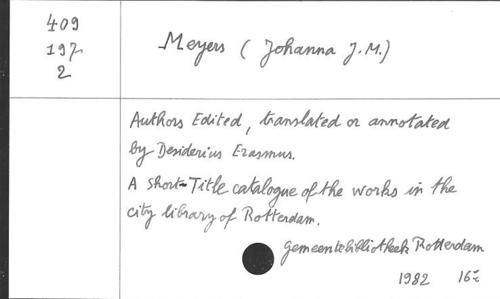 409
197
2
Meyers ( Johanna J. M.)
Authors Edited, translated or annotated
by Desiderius Erasmus.
A Short-Title catalogue of the works in the
city library of Rotterdam.
Gemeentebibliotheek Rotterdam
1982 16=